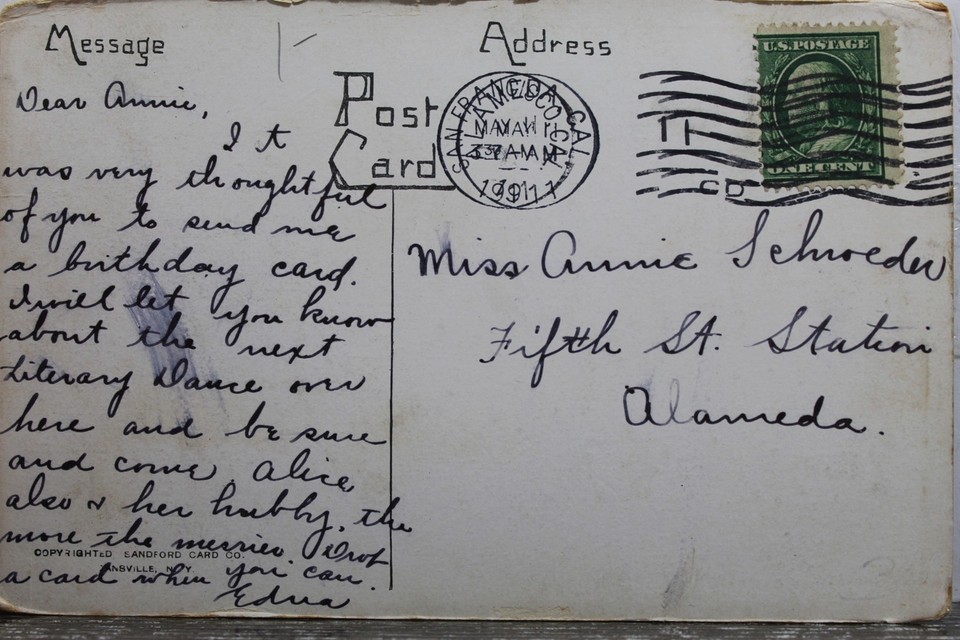 Message
Address
Post
Card
U.S. POSTAGE
ONE CENT
SAN FRANCISCO, CAL.
MAY 11
1911
Dear Annie,
It
was very thoughtful
of you to send me
a birthday card.
I will let you know
about the next
Literary Dance over
here and be sure
and come, Alice
also & her hubby, the
more the merrier Drop
a card when you can.
Edna
Miss Annie Schroeder
Fifth St. Station
Alameda.
COPYRIGHTED SANDFORD CARD CO.
ANSVILLE, N.Y.